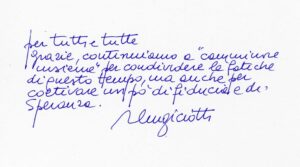 per tutti e tutte
Grazie, continuiamo a "camminare
insieme" per condividere le fatiche
di questo tempo, ma anche per
coltivare un po' di fiducia e di
Speranza.